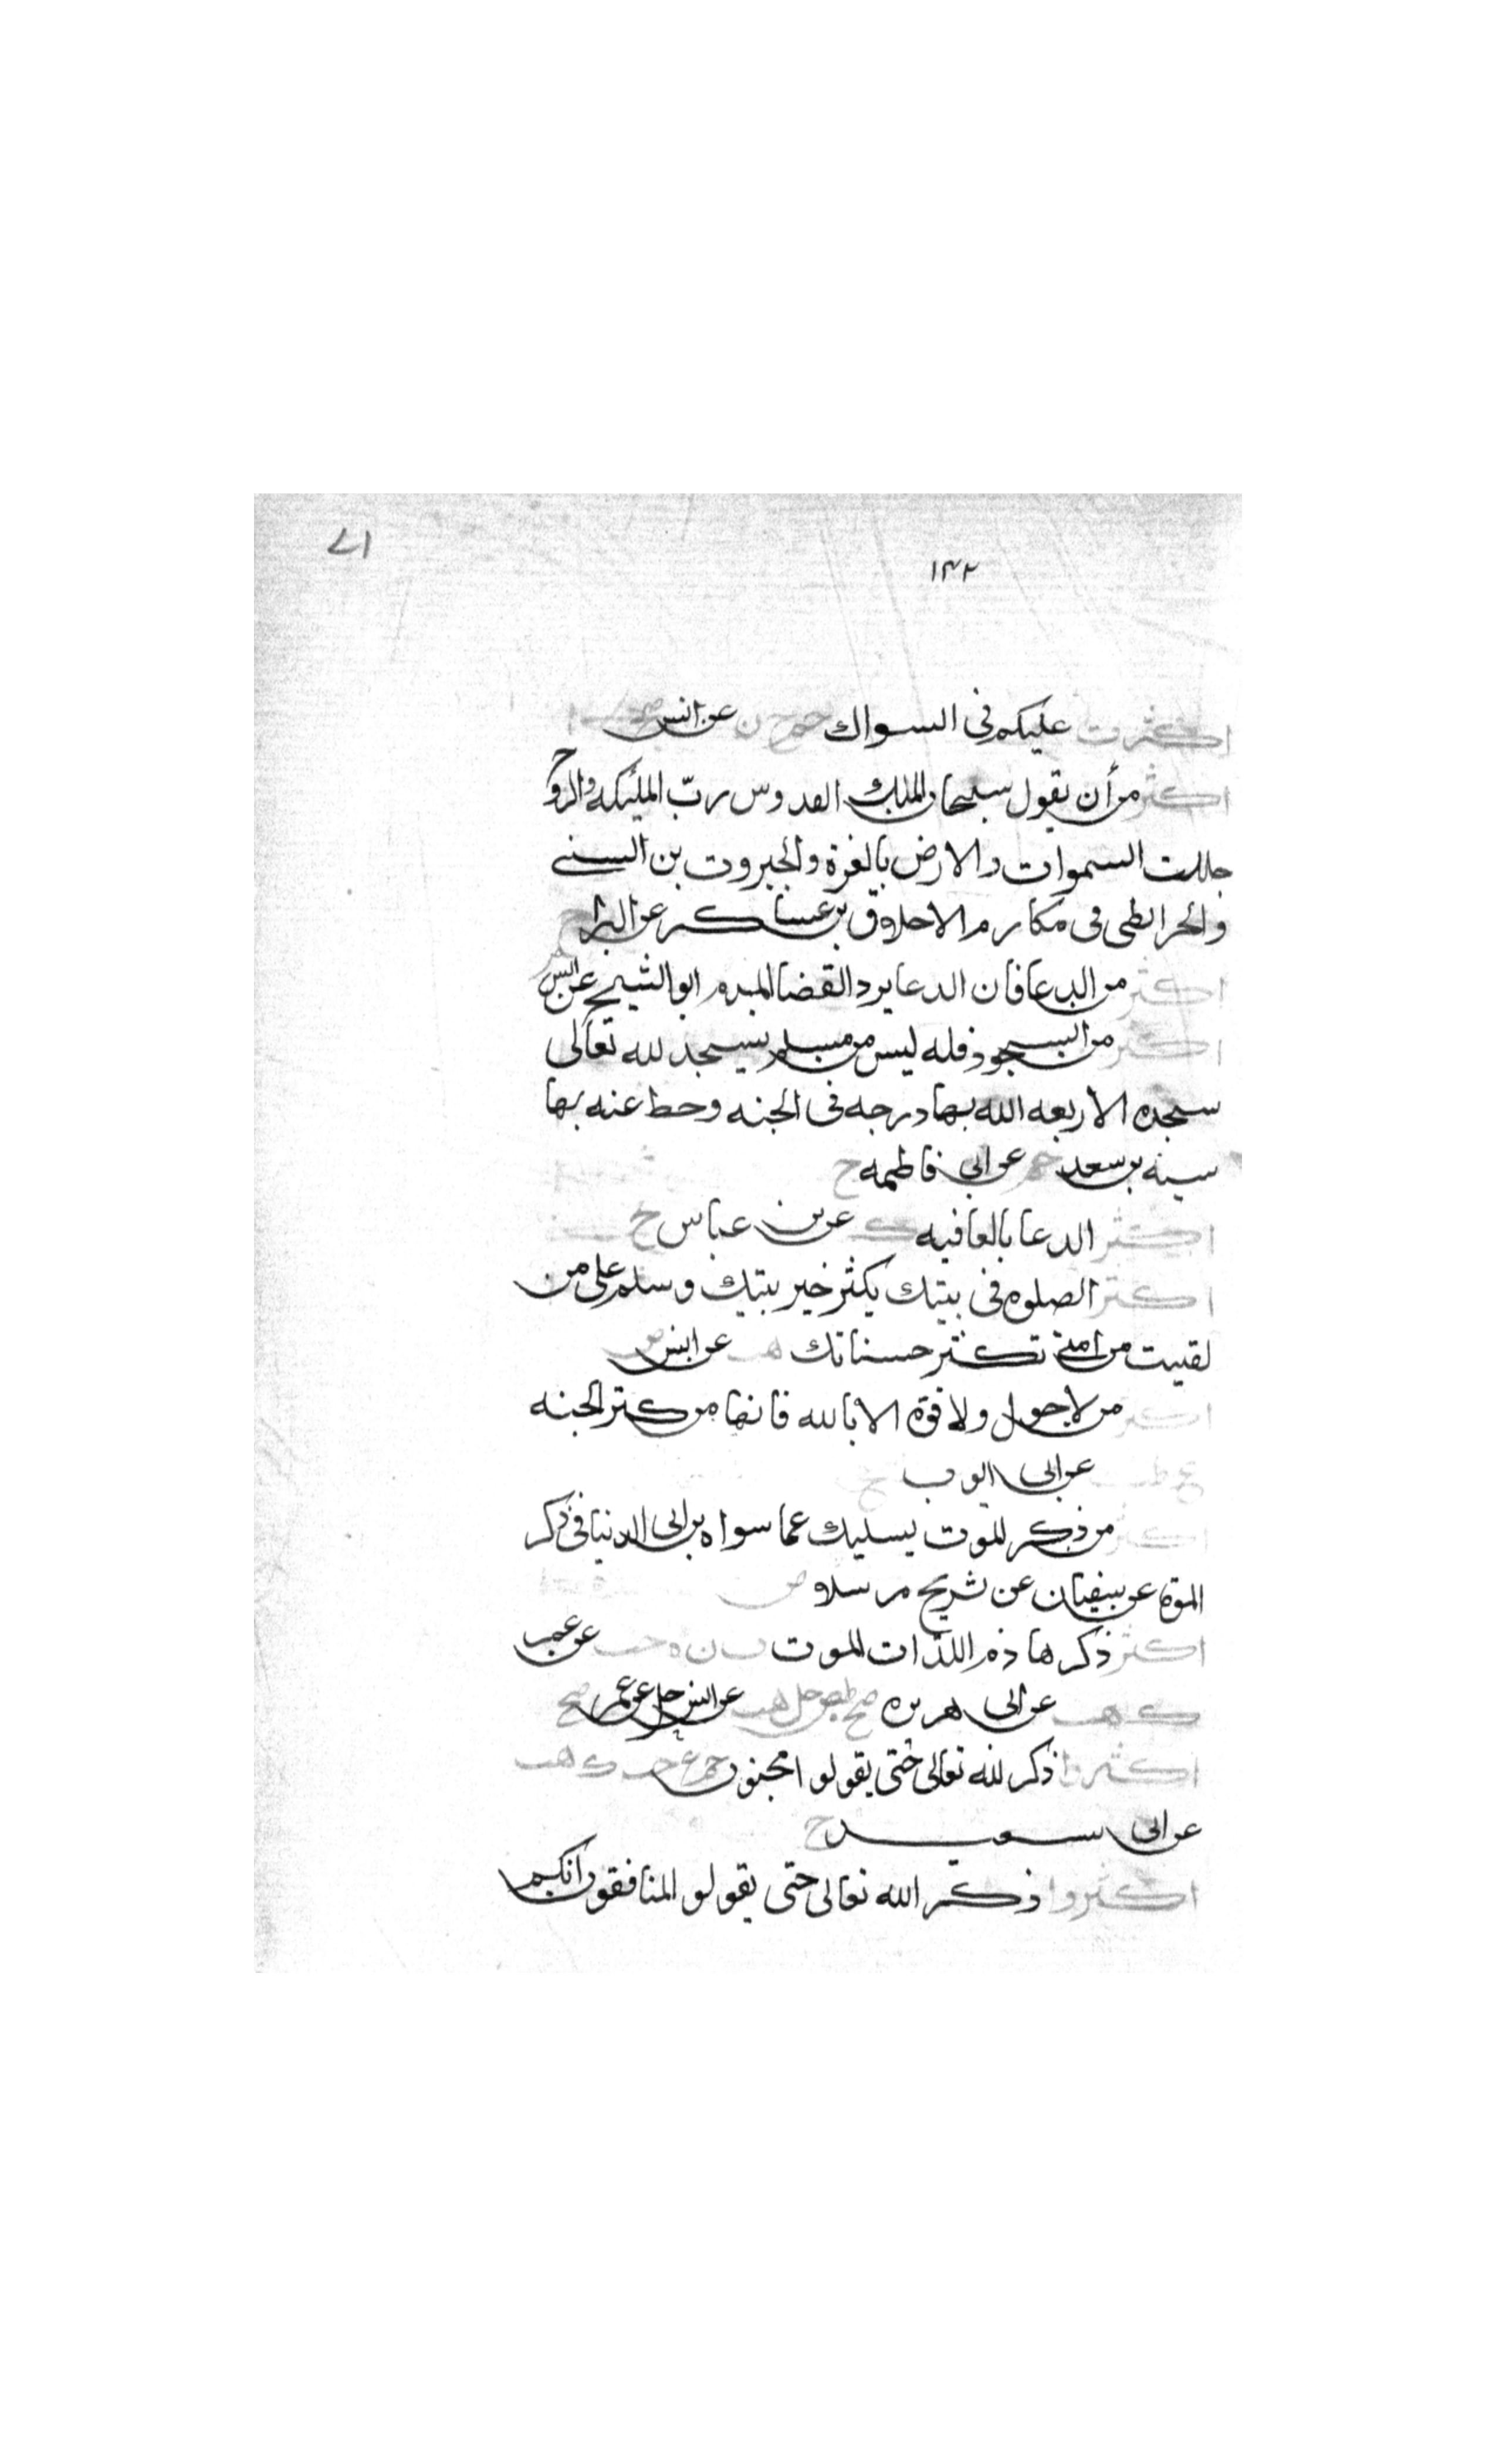 ١٣٢
اكثرت عليكم في السواك حم خ ن عن انس
اكثر من أن يقول سبحان الملك القدوس ربّ المليكه والروح
جللت السموات والارض بالعزة والجبروت بن السني
والخرائطي في مكارم الاخلاق بن عساكر عن البرا
اكثر من الدعا فان الدعا يرد القضا المبرم ابو الشيخ عن انس
اكثر من السجود فانه ليس من مسلم يسجد لله تعالى
سجده الا رفعه الله بها درجه في الجنه وحط عنه بها
سيئه بن سعد حم عن ابي فاطمه ح
اكثر الدعا بالعافيه ك عن بن عباس ح
اكثر الصلوه في بيتك يكثر خير بيتك وسلم على من
لقيت من امتي تكثر حسناتك هب عن انس ض
اكثر من لا حول ولا قوة الا بالله فانها من كنز الجنه
ع طب عن ابي ايوب ح
اكثر من ذكر الموت يسليك عما سواه بن ابي الدنيا في ذكر
الموت عن سفيان عن شريح مرسلا ض
اكثر ذكر هاذم اللذات الموت ت ن ه حب عن عمر
ك هب عن ابي هريره صح طس حل هب عن انس حل عن عمر صح
اكثروا ذكر الله تعالى حتى يقولوا مجنون حم ع حب ك هب
عن ابي سعيد ح
اكثروا ذكر الله تعالى حتى يقولو المنافقون انكم